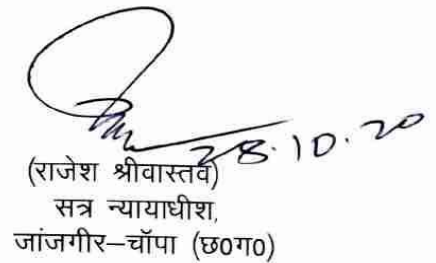 28.10.20
(राजेश श्रीवास्तव)
सत्र न्यायाधीश,
जांजगीर–चॉपा (छ0ग0)